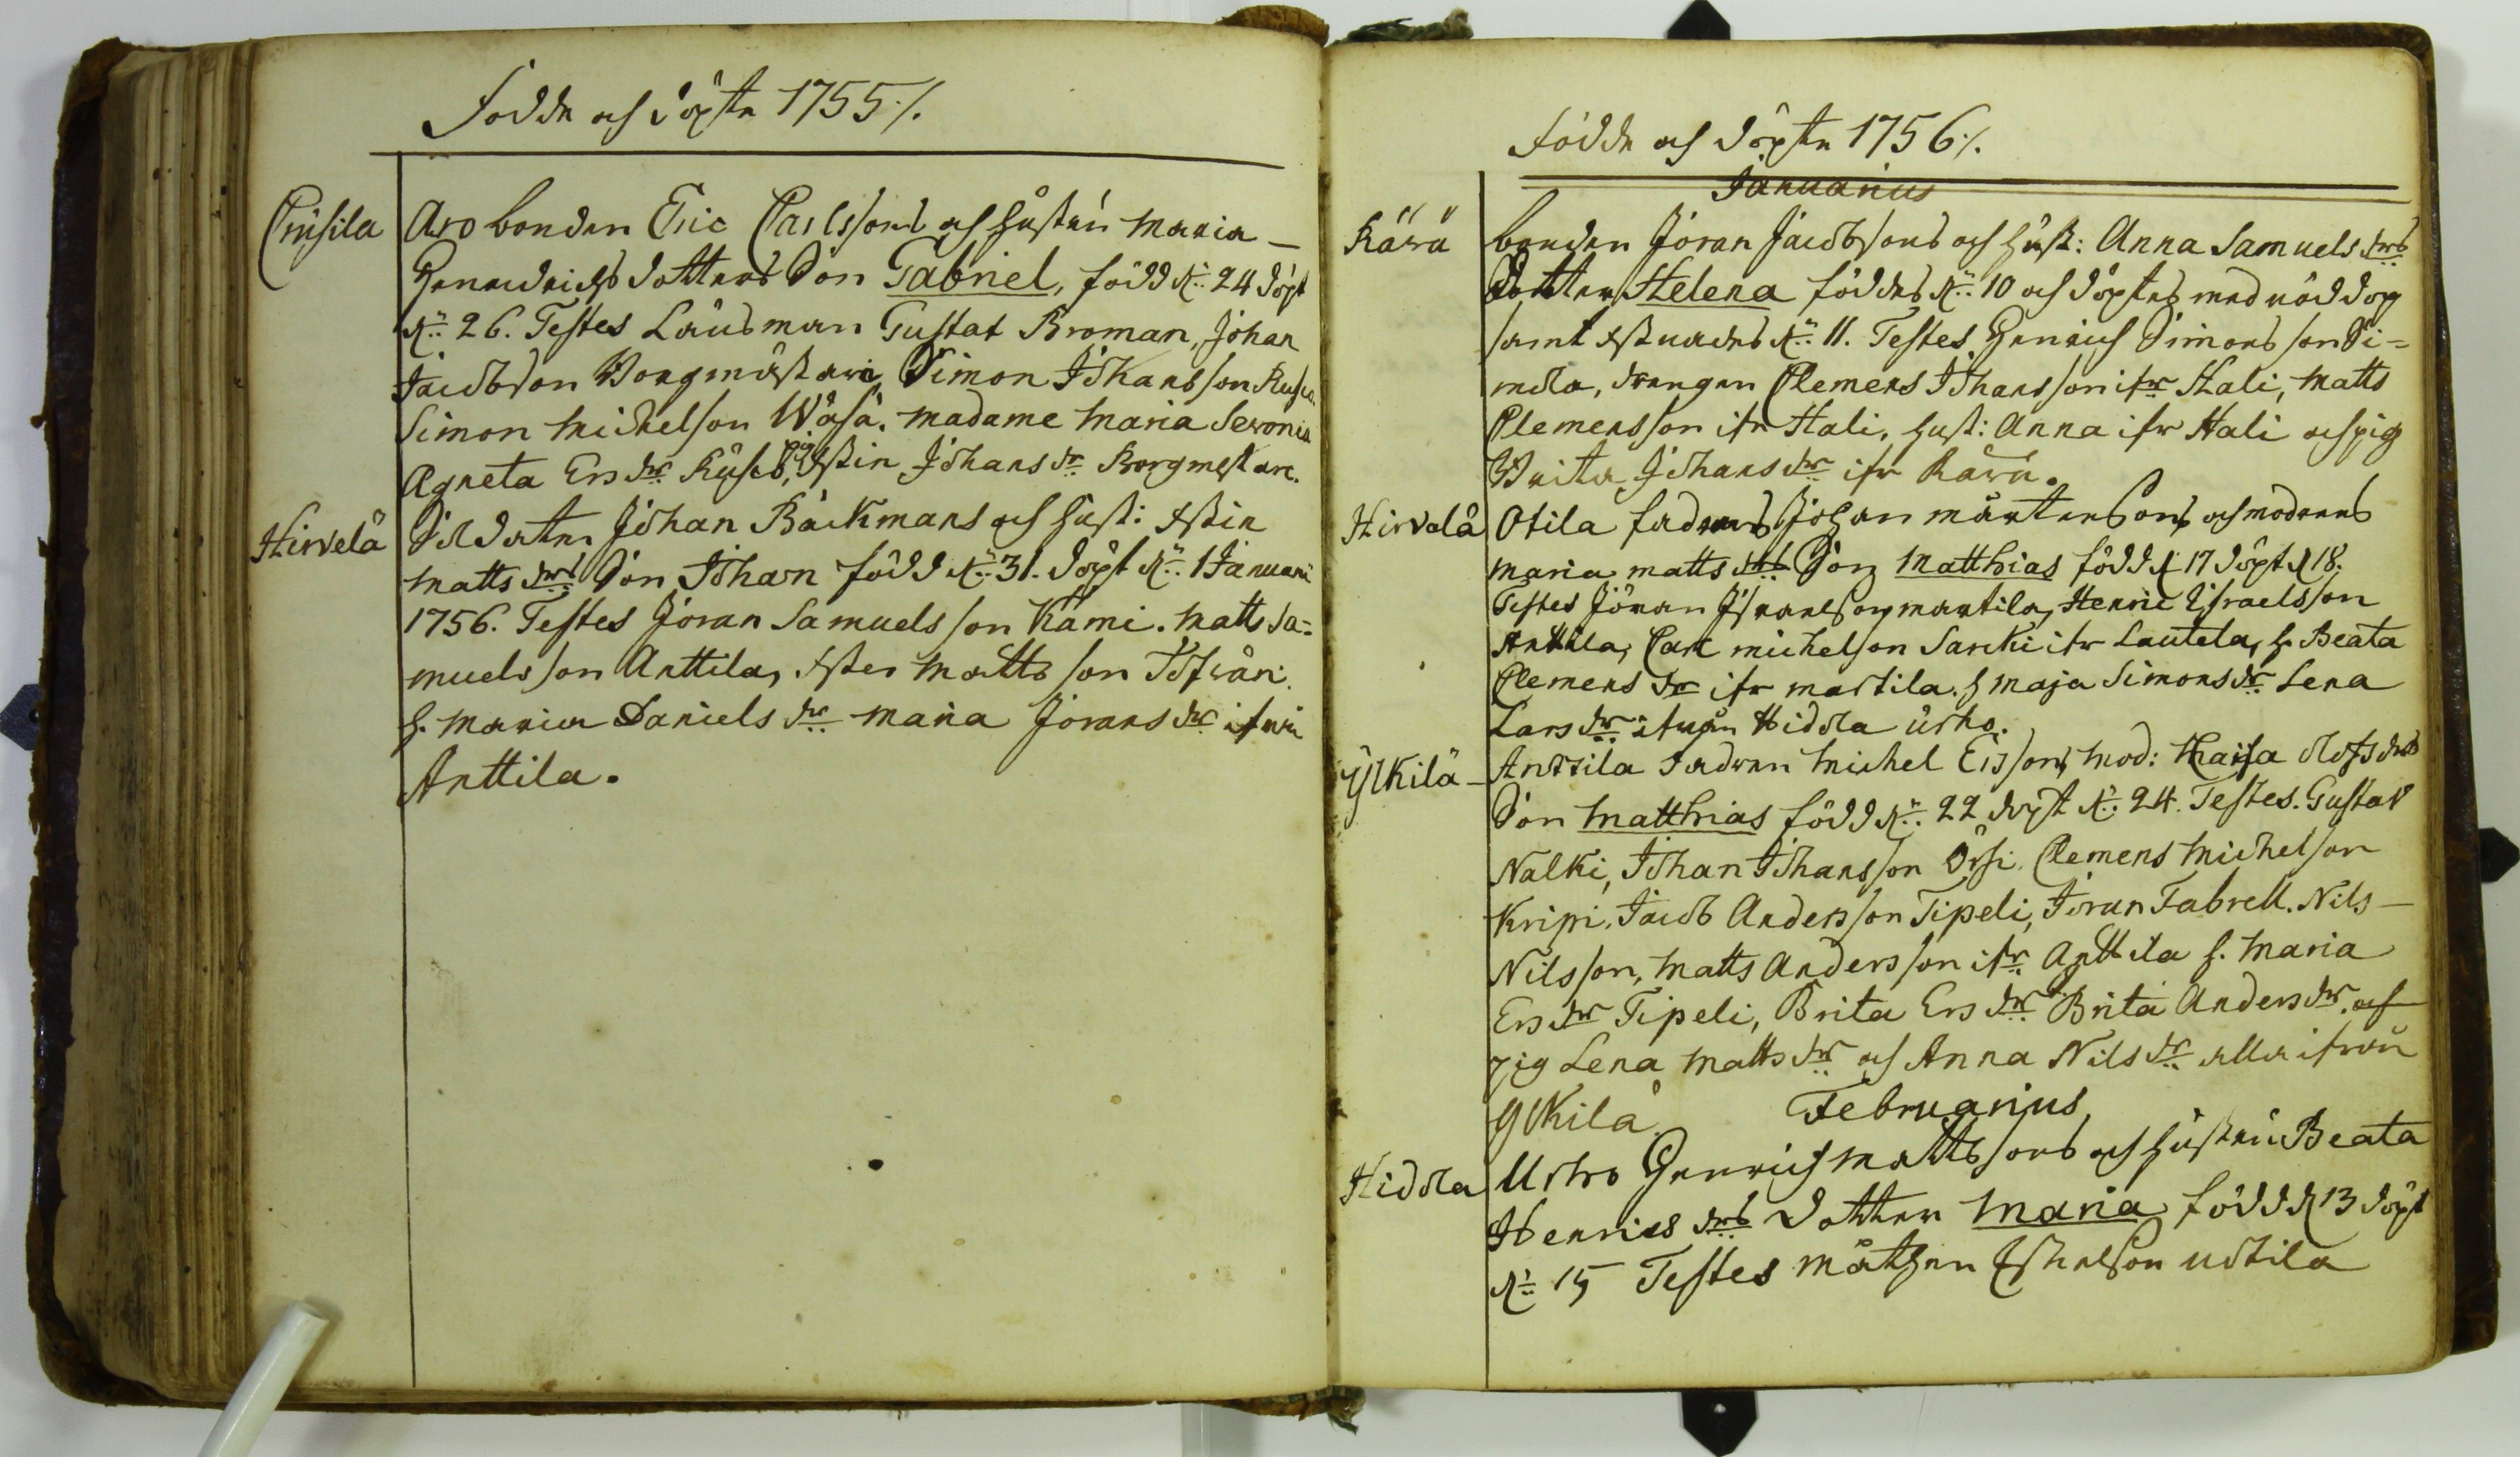 Födde och döpte 1755./.
Cruusila Aro bonden Eric Carlssons och hustru Maria
Henrichsdotters Son Gabriel, född d: 24 döpt
d: 26. Testes Länsman Gustaf Broman, Johan
Jacobson Borgmästare Simon Johansson
Simon Michelson Wäsä. Madame Maria
Agneta Ersdr pig. Johansdr Borgmestare.
Hirvelä Soldaten Johan Bäckmans och hust:
Mattsdrs Son Johan född d: 31. döpt d: 1 Januarii
1756. Testes Jöran Samuelsson Kämi. Matts Sa=
muelsson Anttila, Mattsson
h. Maria Danielsdr Maria Jöransdr ifrån
Anttila.
Födde och döpte 1756./.
Januarius
Kärä bonden Jöran Jacobsons och hust: Anna Samuelsdrs
dotter Helena föddes d: 10 och döptes med nöddop
samt d: 11. Testes Henrich Simonsson Si=
mola, drengen Clemens Johansson ifr Hali, Matts
Clemensson ifr Hali, hust: Anna ifr Hali och pig
Brita Johansdr ifr Kärä.
Hirvelä Otila fadren Johan Mårtensons och modrens
Maria Mattsdrs Son Matthias född d 17 döpt d 18.
Testes Jöran Martila, Henric Israelsson
Anttila, Carl Michelson Sarcki ifr Lautela, h. Beata
Clemensdr ifr Martila. h Maja Simonsdr Lena
Larsdr ifrån Hidola Urho.
Ylkilä Anttila fadren Michel Ersson, Mod: Olofsdrs
Son Matthias född d: 22 döpt d: 24. Testes. Gustav
Nalki, Johan Johansson Örsi. Clemens Michelson
Kripi. Jacob Andersson Tipeli, Jöran Fabrell. Nils
Nilsson, Matts Andersson ifr Anttila h. Maria
Ersdr Tipeli, Brita Ersdr Brita Andersdr. och
pig Lena Mattsdr och Anna Nilsdr alla ifrån
Ylkilä
Februarius
Hidola Urho Henrich Mattssons och hustru Beata
Henricsdrs dotter Maria född d 13 döpt
d: 15 Testes